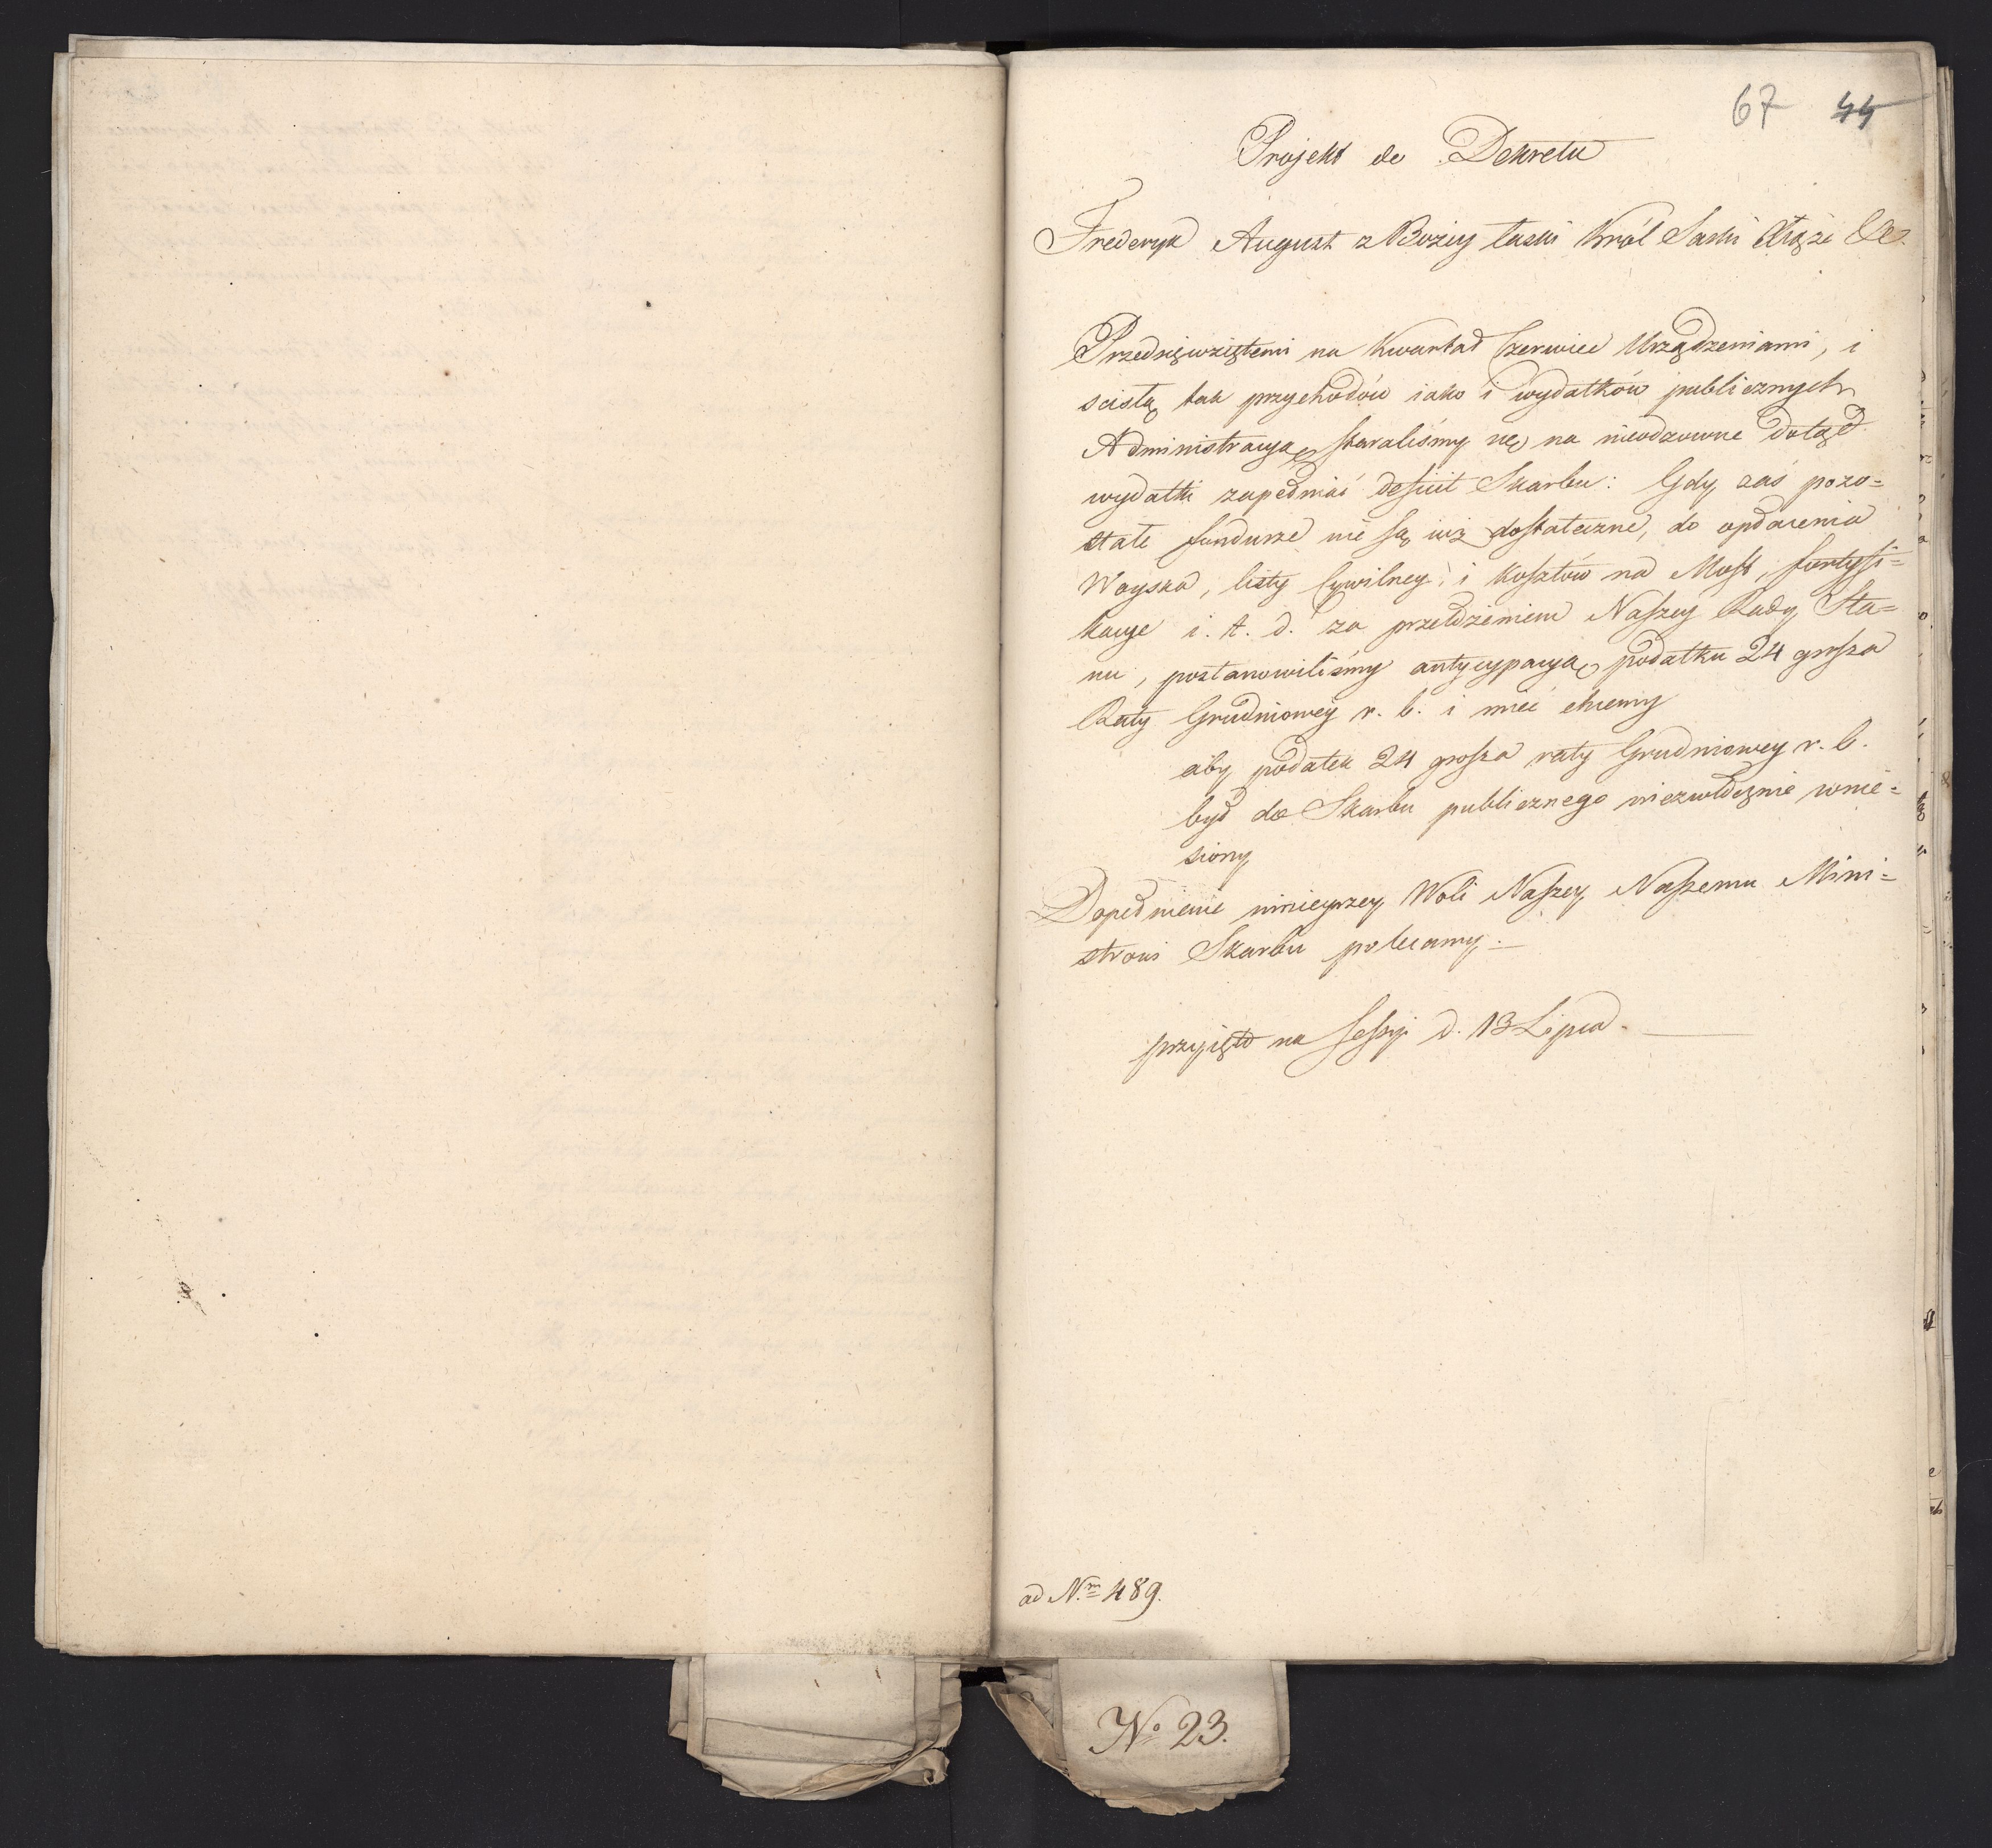 67 44
Projekt do Dekretu
Frederyk August z Bożey łaski Król Saski Xiąże &c.
Przedsięwziętemi na Kwartał Czerwiec Urządzeniami, i
scisłą tak przychodów iako i wydatków publicznych
Administracyą staraliśmy się na nieodzowne dotąd
wydatki zapełniać deficit Skarbu: Gdy zaś pozo=
stałe fundusze nie są iuż dostateczne, do opłacenia
Woyska, listy Cywilney, i kosztów na Most, fortyfi=
kacye i. t. d. za przełożeniem Naszey Rady Sta=
nu, postanowiliśmy antycypacyą podatku 24 grosza
Raty Grudniowey r. b. i mieć chcemy
aby podatek 24 grosza raty Grudniowey r. b.
był do Skarbu publicznego niezwłocznie wnie=
siony
Dopełnienie ninieyszey Woli Naszey, Naszemu Mini=
strowi Skarbu polecamy.
przyięto na Sessyi d. 13 Lipca.
ad N.m 489.
No 23.